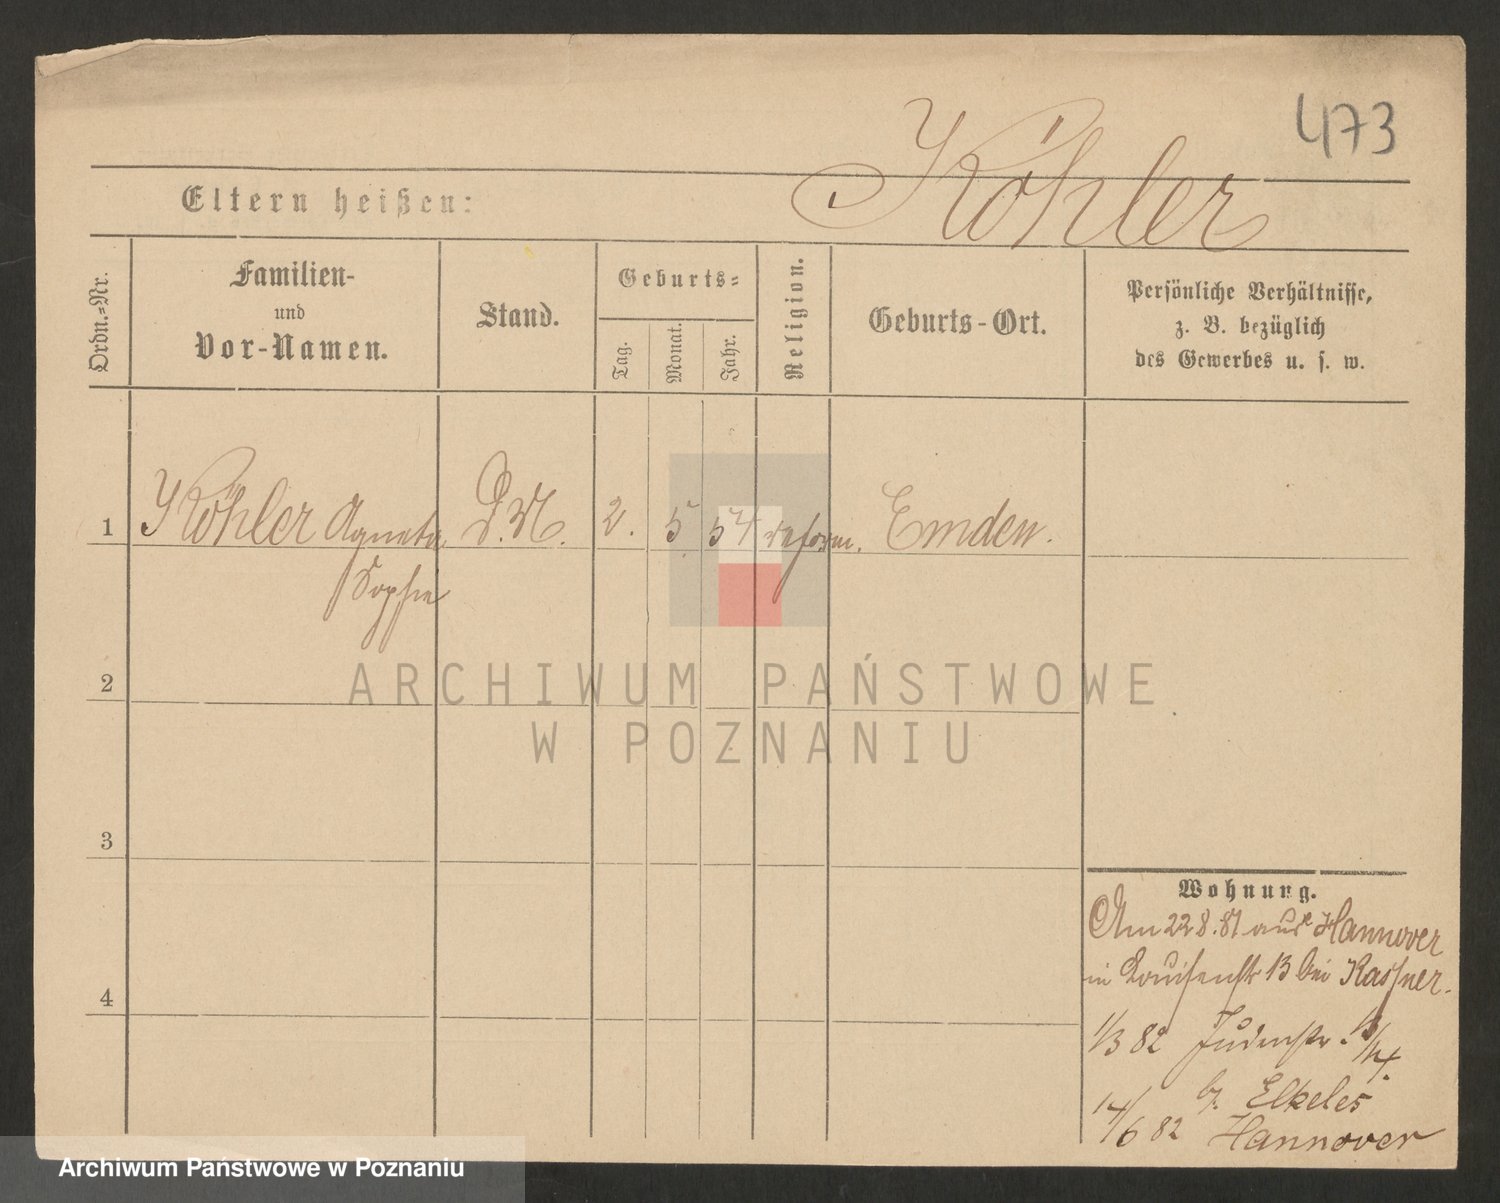 473
Köhler
Eltern heißen:
Ordn.-Nr.
Familien-
und
Vor-Namen.
Stand.
Geburts-
Tag.
Monat.
Jahr.
Religion.
Geburts-Ort.
Persönliche Verhältnisse,
z. B. bezüglich
des Gewerbes u. s. w.
1 Köhler Agneta D. M. 2. 5. 54 reform. Emden.
Sophie
2
3
4
Wohnung.
Am 22 8. 81 aus Hannover
in Louisenstr 13 bei Kassner.
1/3 82 Judenstr.
bz. Elkeles
14/6 82 Hannover
ARCHIWUM PAŃSTWOWE
W POZNANIU
Archiwum Państwowe w Poznaniu